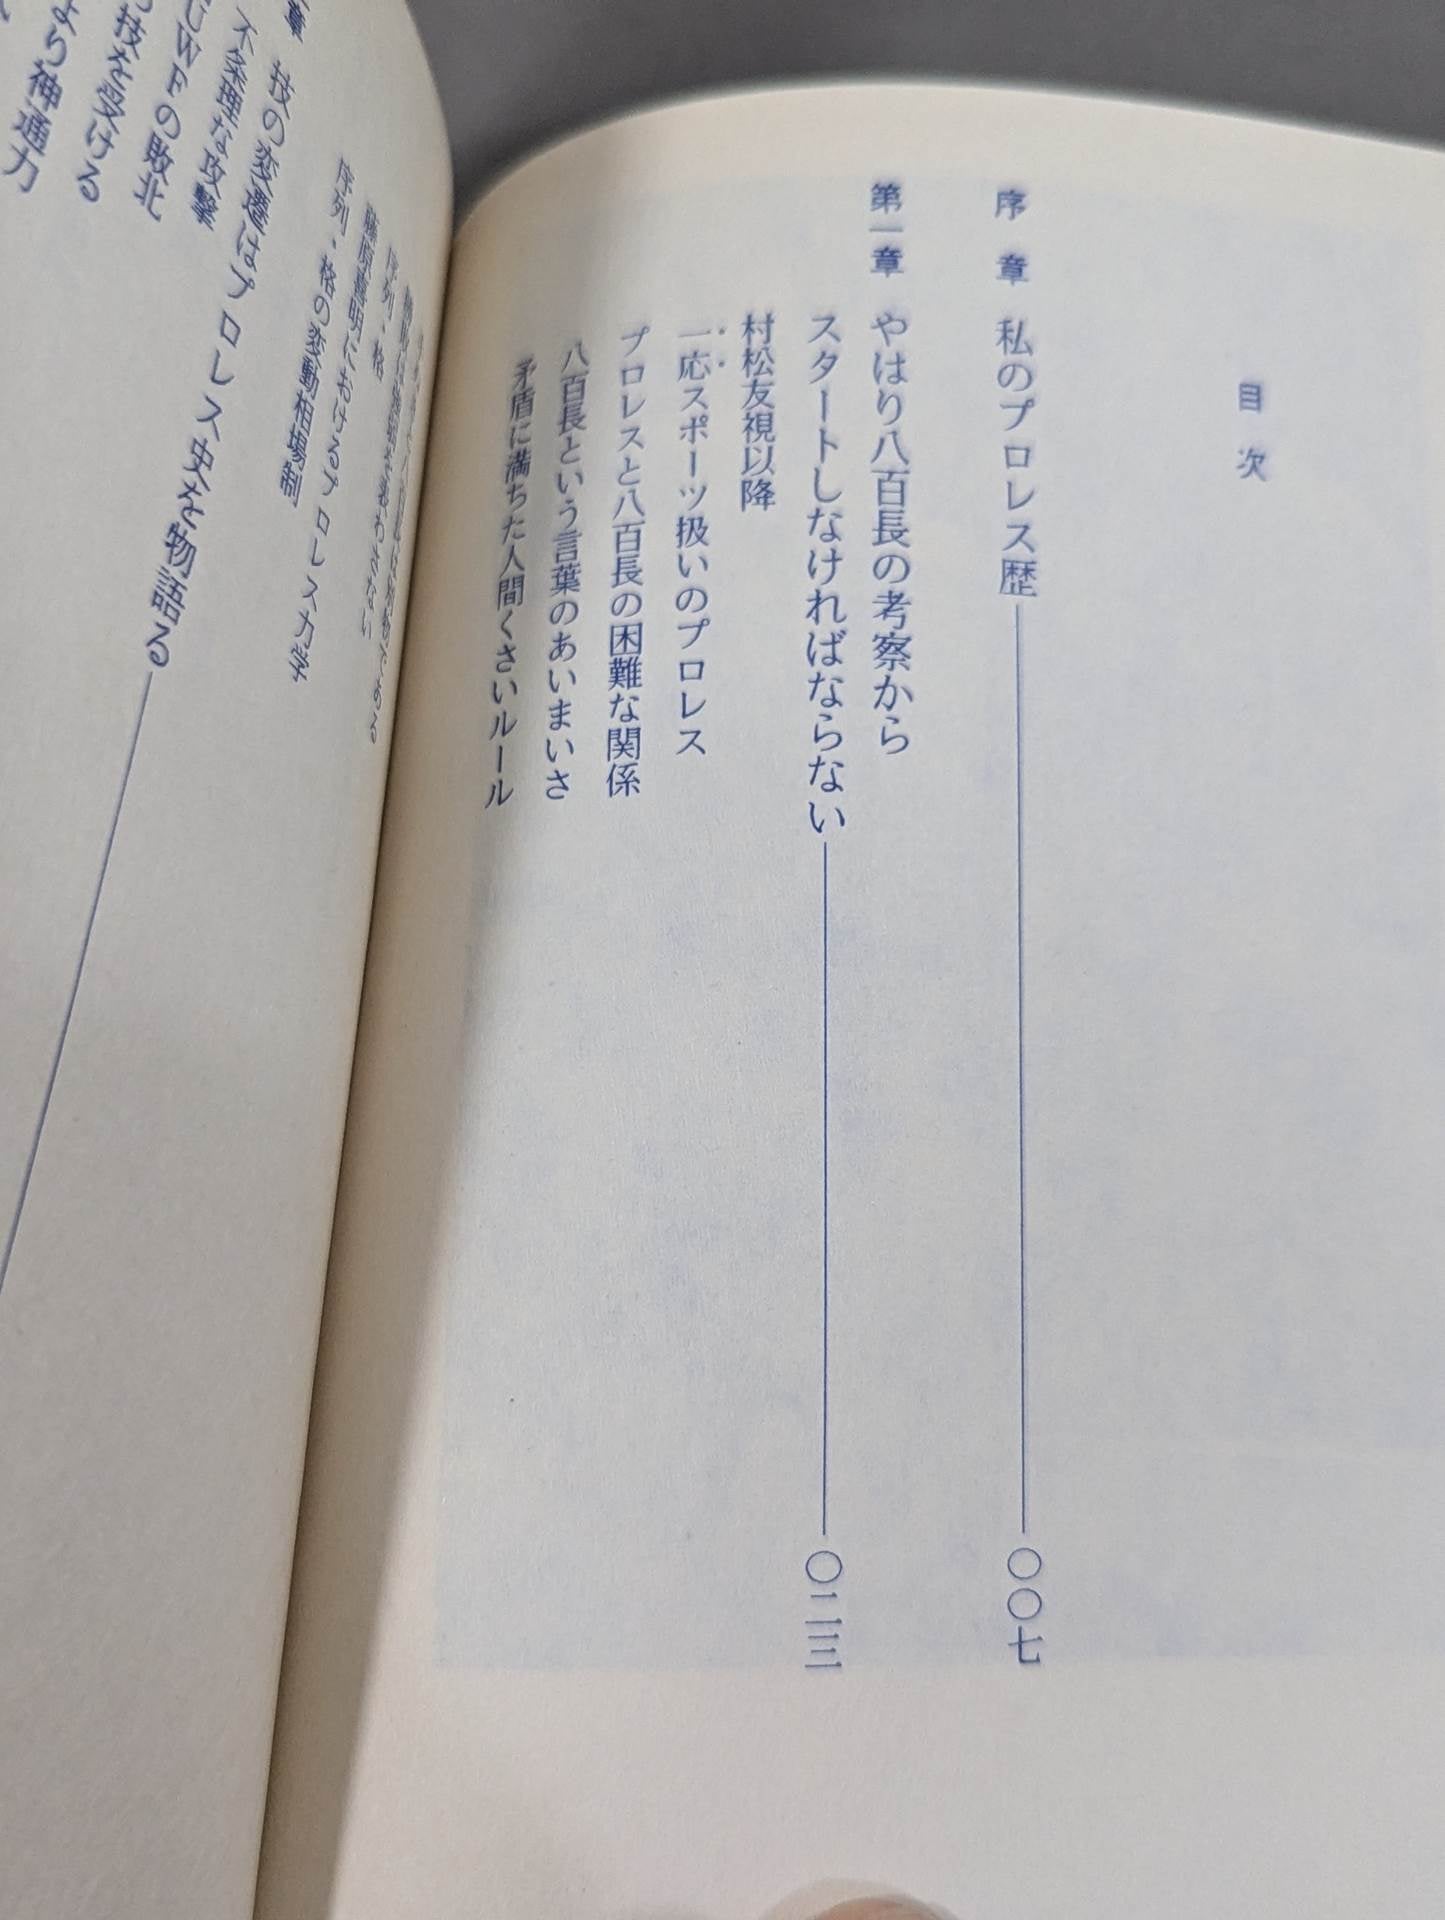 目次
序章 私のプロレス歴 〇〇七
第一章 やはり八百長の考察から
スタートしなければならない 〇二三
村松友視以降
一応スポーツ扱いのプロレス
プロレスと八百長の困難な関係
八百長という言葉のあいまいさ
矛盾に満ちた人間くさいルール
序列・格
藤原喜明におけるプロレス力学
序列・格の変動相場制
章 技の変遷はプロレス史を物語る
不条理な攻撃
UWFの敗北
技を受ける
より神通力